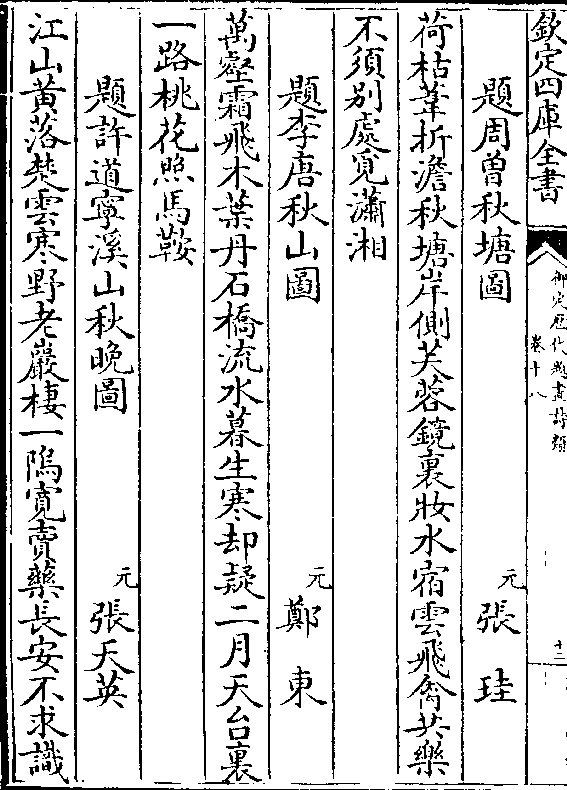 欽定四庫全書
御定歷代題畫詩類
卷十八
十二
題周曽秋塘圖
元
張珪
荷枯葦折澹秋塘岸側芙蓉鏡裏妝水宿雲飛禽共樂
不須别處覓瀟湘
題李唐秋山圖
元
鄭東
萬壑霜飛木葉丹石橋流水暮生寒却疑二月天台裏
一路桃花照馬鞍
題許道寧溪山秋晚圖
元
張天英
江山黄落楚雲寒野老巖棲一隖寛賣藥長安不求識